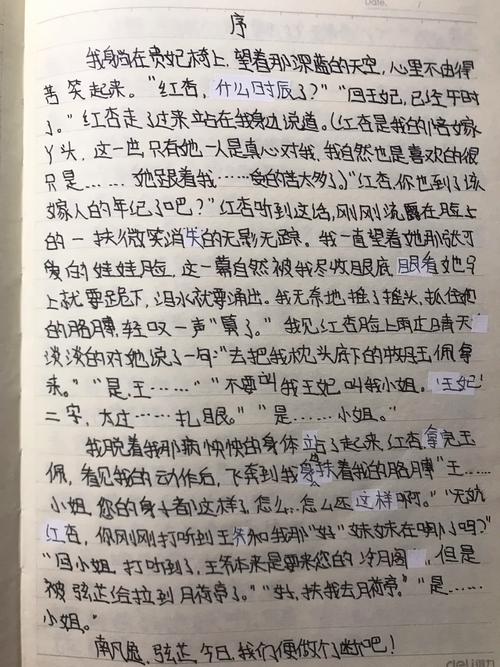 Date.
序
我躺在贵妃椅上，望着那深蓝的天空，心里不由得
苦笑起来。“红杏，什么时辰了？”“回王妃，已经午时
了。”红杏走了过来站在我身边说道。（红杏是我的陪嫁
丫头，这一世只有她一人是真心对我，我自然也是喜欢的很
只是……她跟着我……受的苦太多了。）“红杏，你也到了该
嫁人的年纪了吧？”红杏听到这话，刚刚流露在脸上
的一抹微笑消失的无影无踪。我一直望着她那张可
爱的娃娃脸，这一幕自然被我尽收眼底，眼看她马
上就要跪下，泪水就要涌出。我无奈地摇了摇头，抓住她
的胳膊，轻叹一声“算了。”我见红杏脸上雨过晴天
淡淡的对她说了一句：“去把我枕头底下的玉佩拿
来。”“是，王……”“不要叫我王妃，叫我小姐。‘王妃’
二字，太过……扎眼。”“是……小姐。”
我脱着我那病怏怏的身体站了起来，红杏拿完玉
佩，看见我的动作后，飞奔到我身扶着我的胳膊“王……
小姐，您的身子都这样了，怎么，怎么还这样啊。”“无妨
红杏，你刚刚打听到王爷和我那“好”妹妹在哪儿了吗？”
“回小姐，打听到了，王爷本来是要来您的冷月阁，但是
被弦芷给拉到月荷亭了。”“好，扶我去月荷亭。”“是……
小姐。”
南风逸，弦芷，今日，我们便做个了断吧！
deli得力